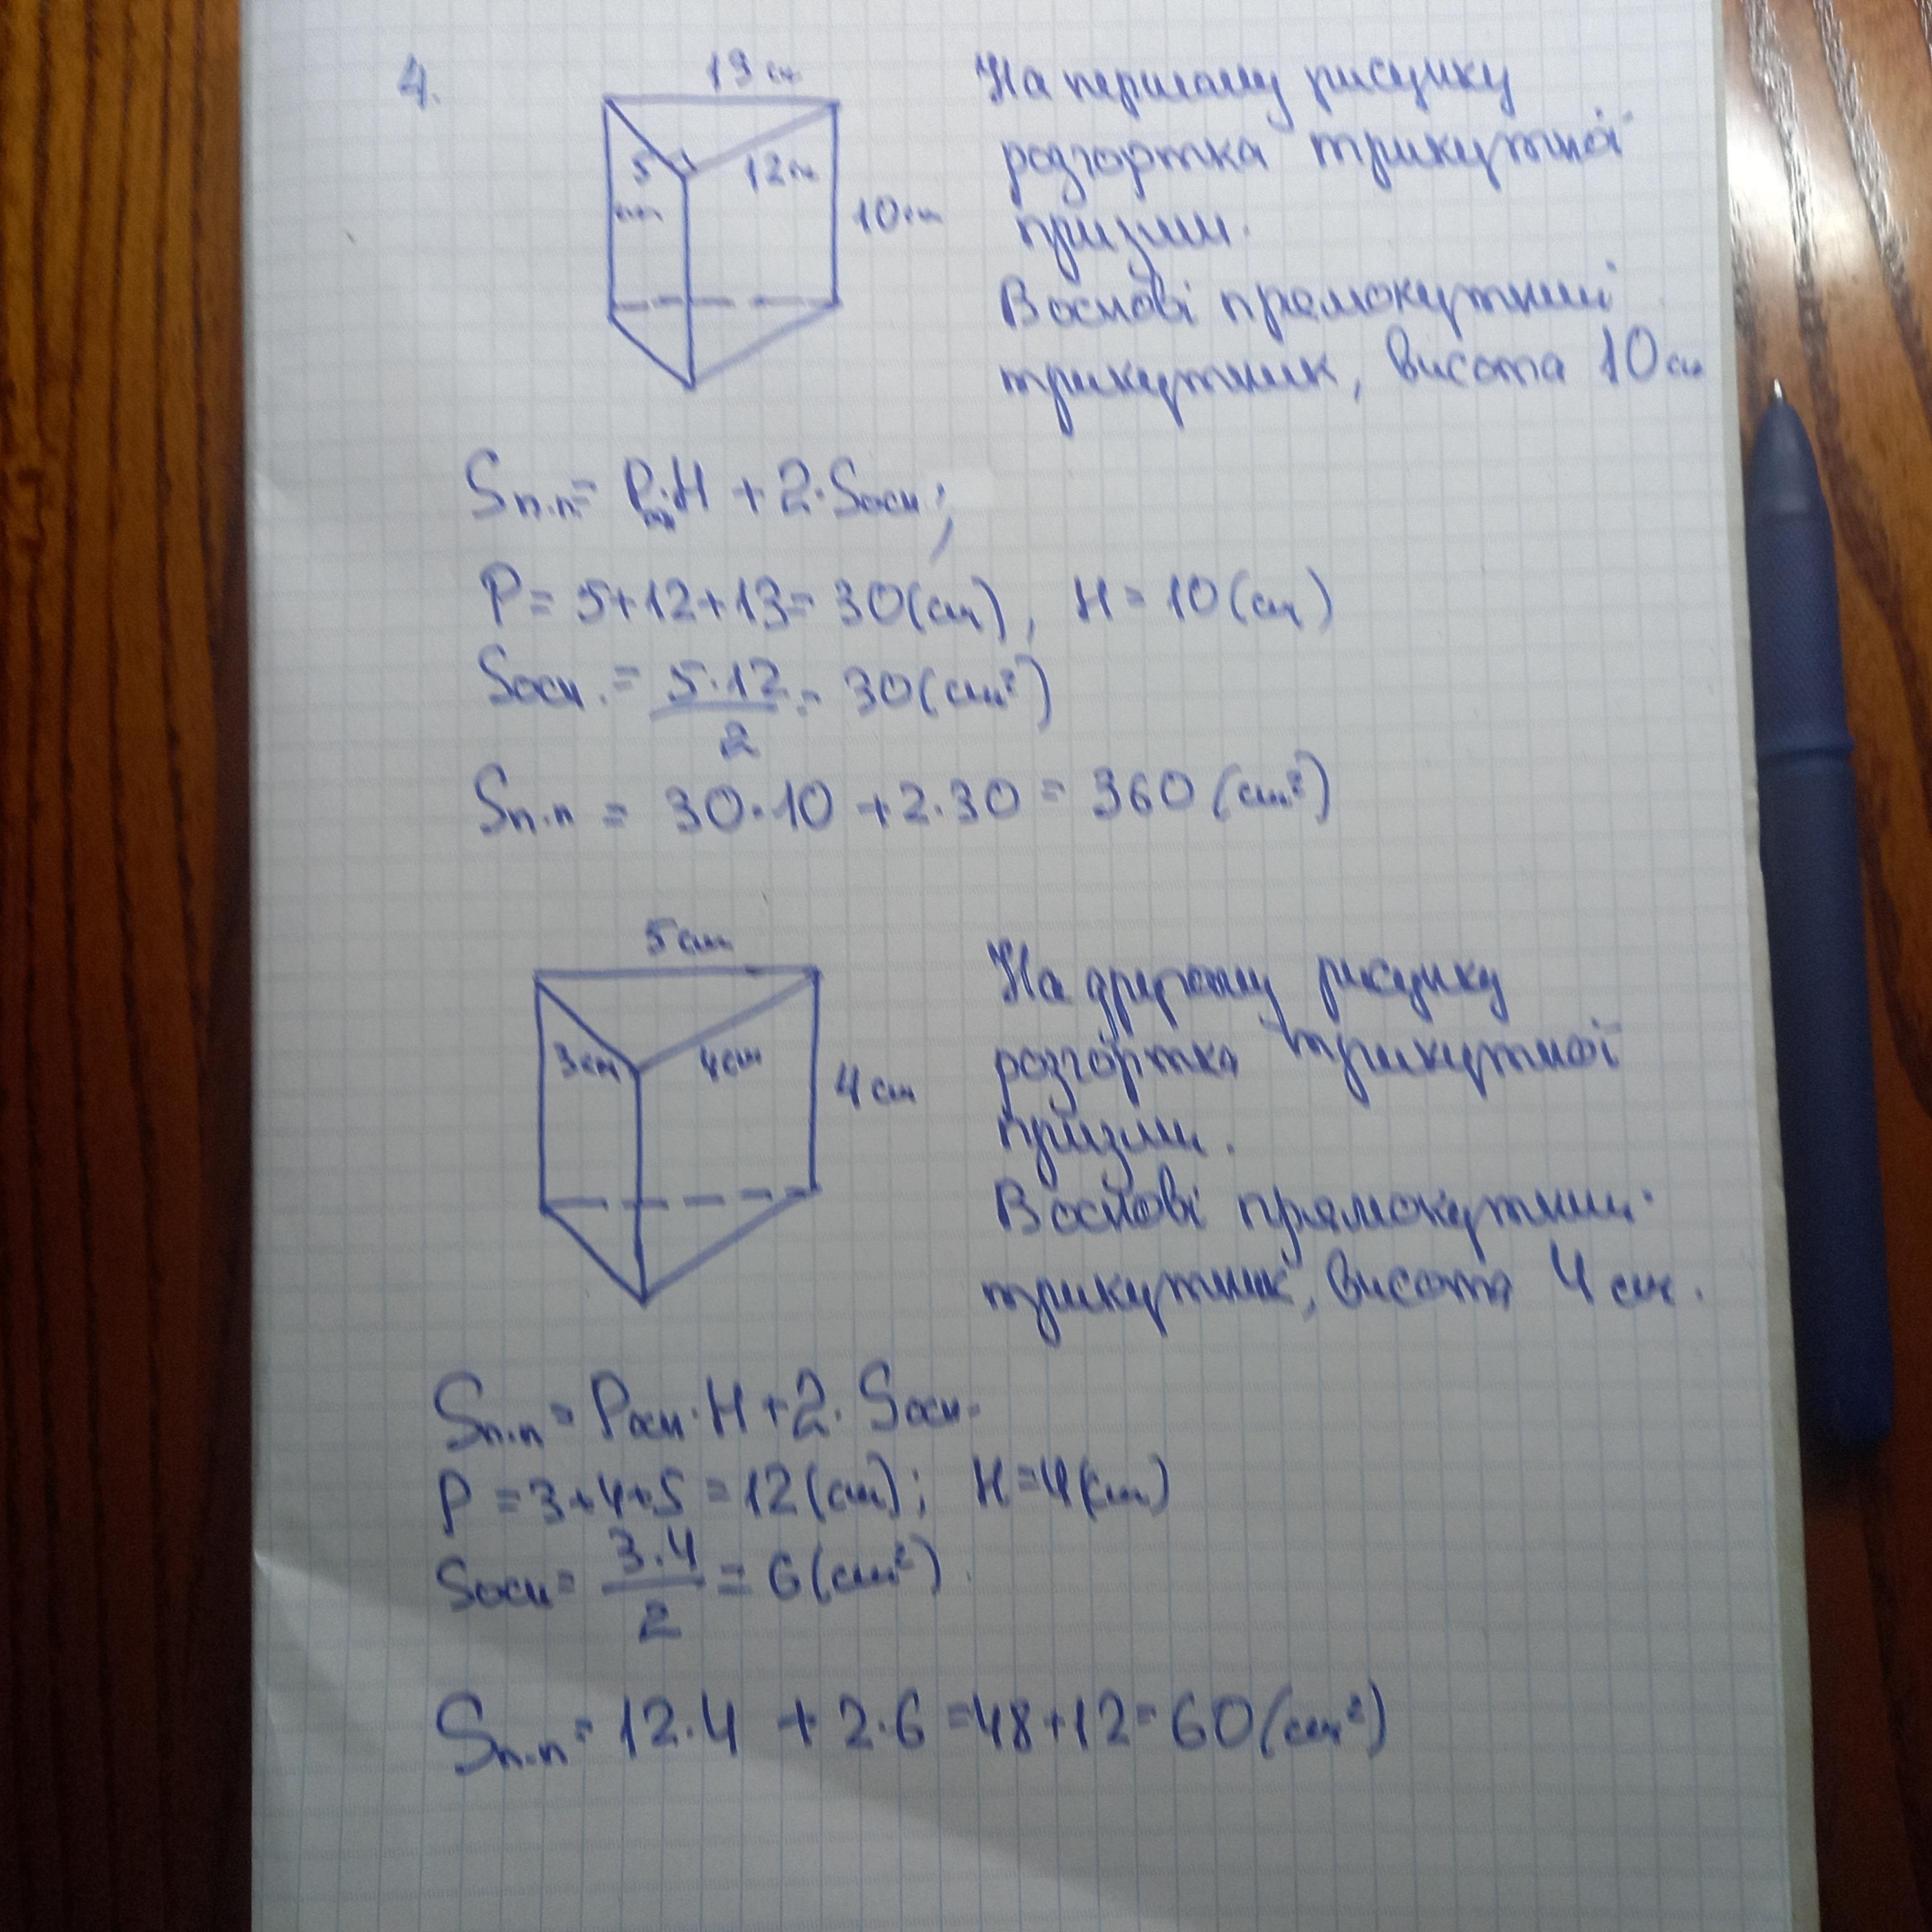 4.
13 см
5
см
12см
10см
На першому рисунку
розгортка трикутної
призми.
В основі прямокутний
трикутник, висота 10см
Sп.п.= Pосн·H + 2·Sосн.;
P = 5+12+13= 30(см), H = 10(см)
Sосн. = 5·12/2 = 30(см²)
Sп.п = 30·10 +2·30 = 360 (см²)
5см
3см
4см
4см
На другому рисунку
розгортка трикутної
призми.
В основі прямокутний
трикутник, висота 4 см.
Sп.п = Pосн·H+2·Sосн.
P = 3+4+5 =12(см); H=4(см)
Sосн= 3·4/2 = 6(см²).
Sп.п = 12·4 + 2·6 =48+12= 60(см²)